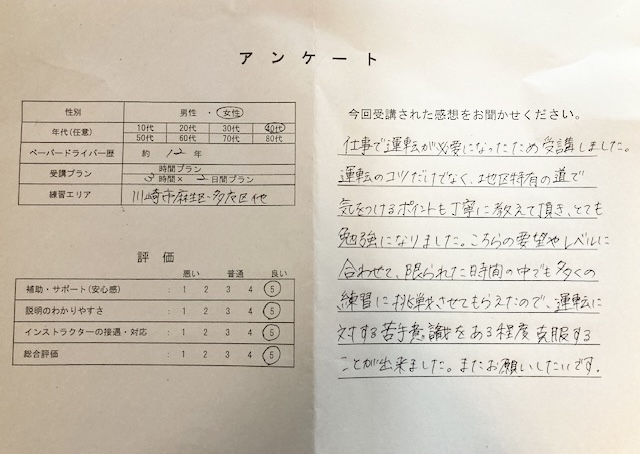 アンケート
性別 男性 ・ 女性
年代(任意) 10代 20代 30代 40代
50代 60代 70代 80代
ペーパードライバー歴 約 12 年
受講プラン 時間プラン
3 時間× 2 日間プラン
練習エリア 川崎市麻生区・多摩区他
評価
悪い 普通 良い
補助・サポート(安心感) : 1 2 3 4 5
説明のわかりやすさ : 1 2 3 4 5
インストラクターの接遇・対応 : 1 2 3 4 5
総合評価 : 1 2 3 4 5
今回受講された感想をお聞かせください。
仕事で運転が必要になったため受講しました。
運転のコツだけでなく、地区特有の道で
気をつけるポイントも丁寧に教えて頂き、とても
勉強になりました。こちらの要望やレベルに
合わせて、限られた時間の中でも多くの
練習に挑戦させてもらえたので、運転に
対する苦手意識をある程度克服する
ことが出来ました。またお願いしたいです.